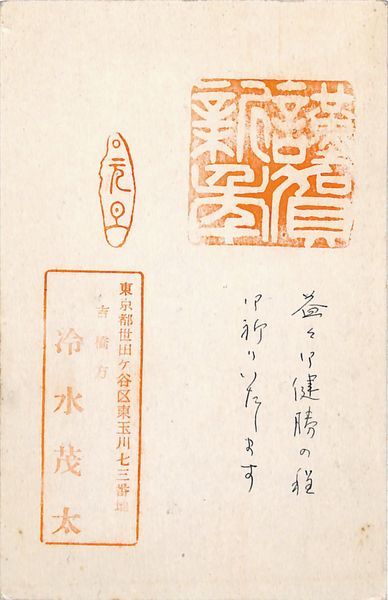 謹賀新年
益々御健勝の程
御祈りいたします
元旦
東京都世田ヶ谷区東玉川七三番地
吉橋方
冷水茂太